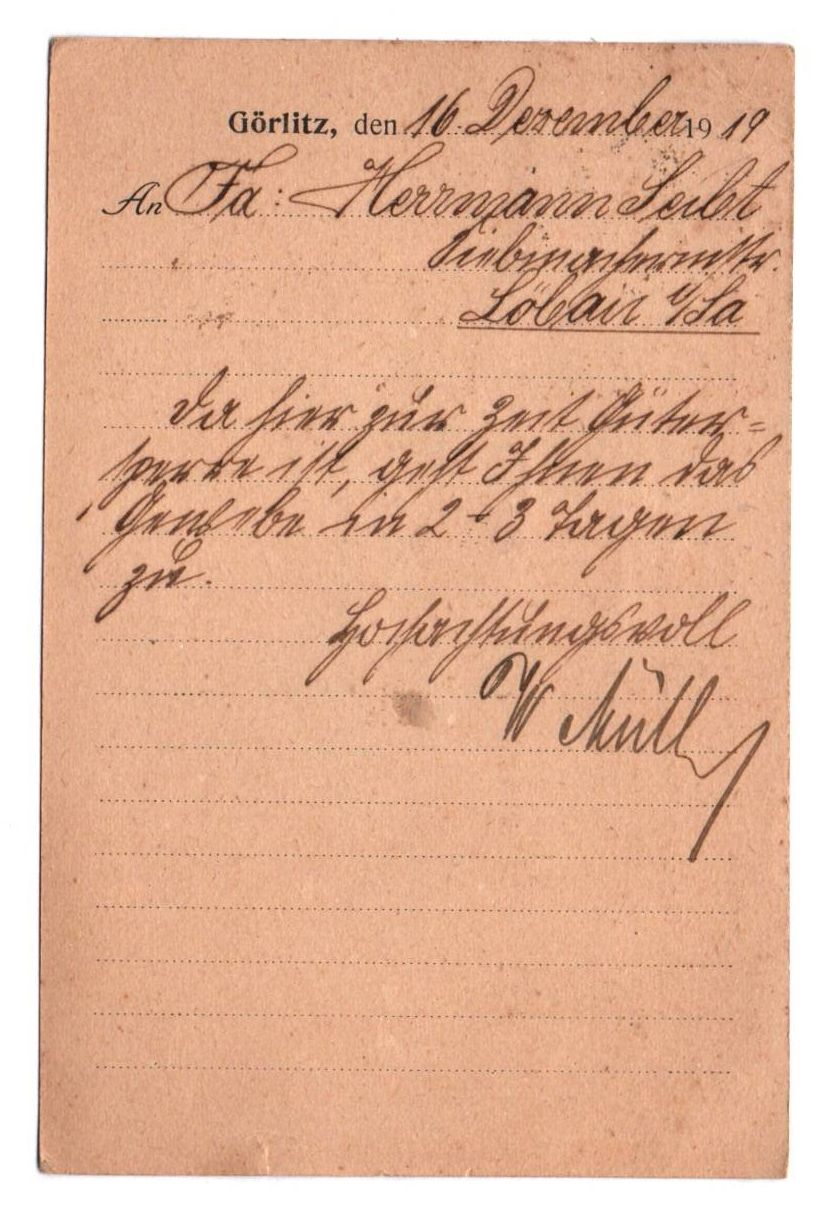 Görlitz, den 16. Dezember 1919
An Fa: Herrmann Seibt
Siebmachermstr.
Löbau i/Sa
Da hier zur Zeit Güter=
sperre ist, geht Ihnen das
Gewebe in 2-3 Tagen
zu.
Hochachtungsvoll
W Müll